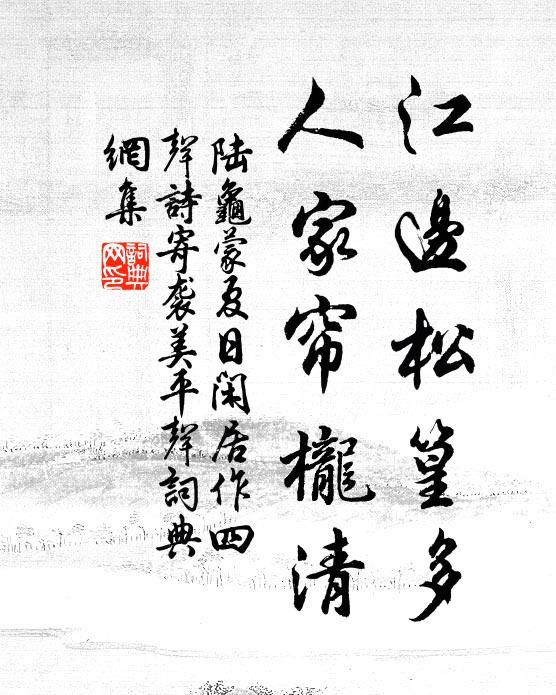 江邊松篁多
人家帘櫳清
陆龜蒙夏日閑居作四
聲詩寄袭美平聲詞典
網集
詞典
网印